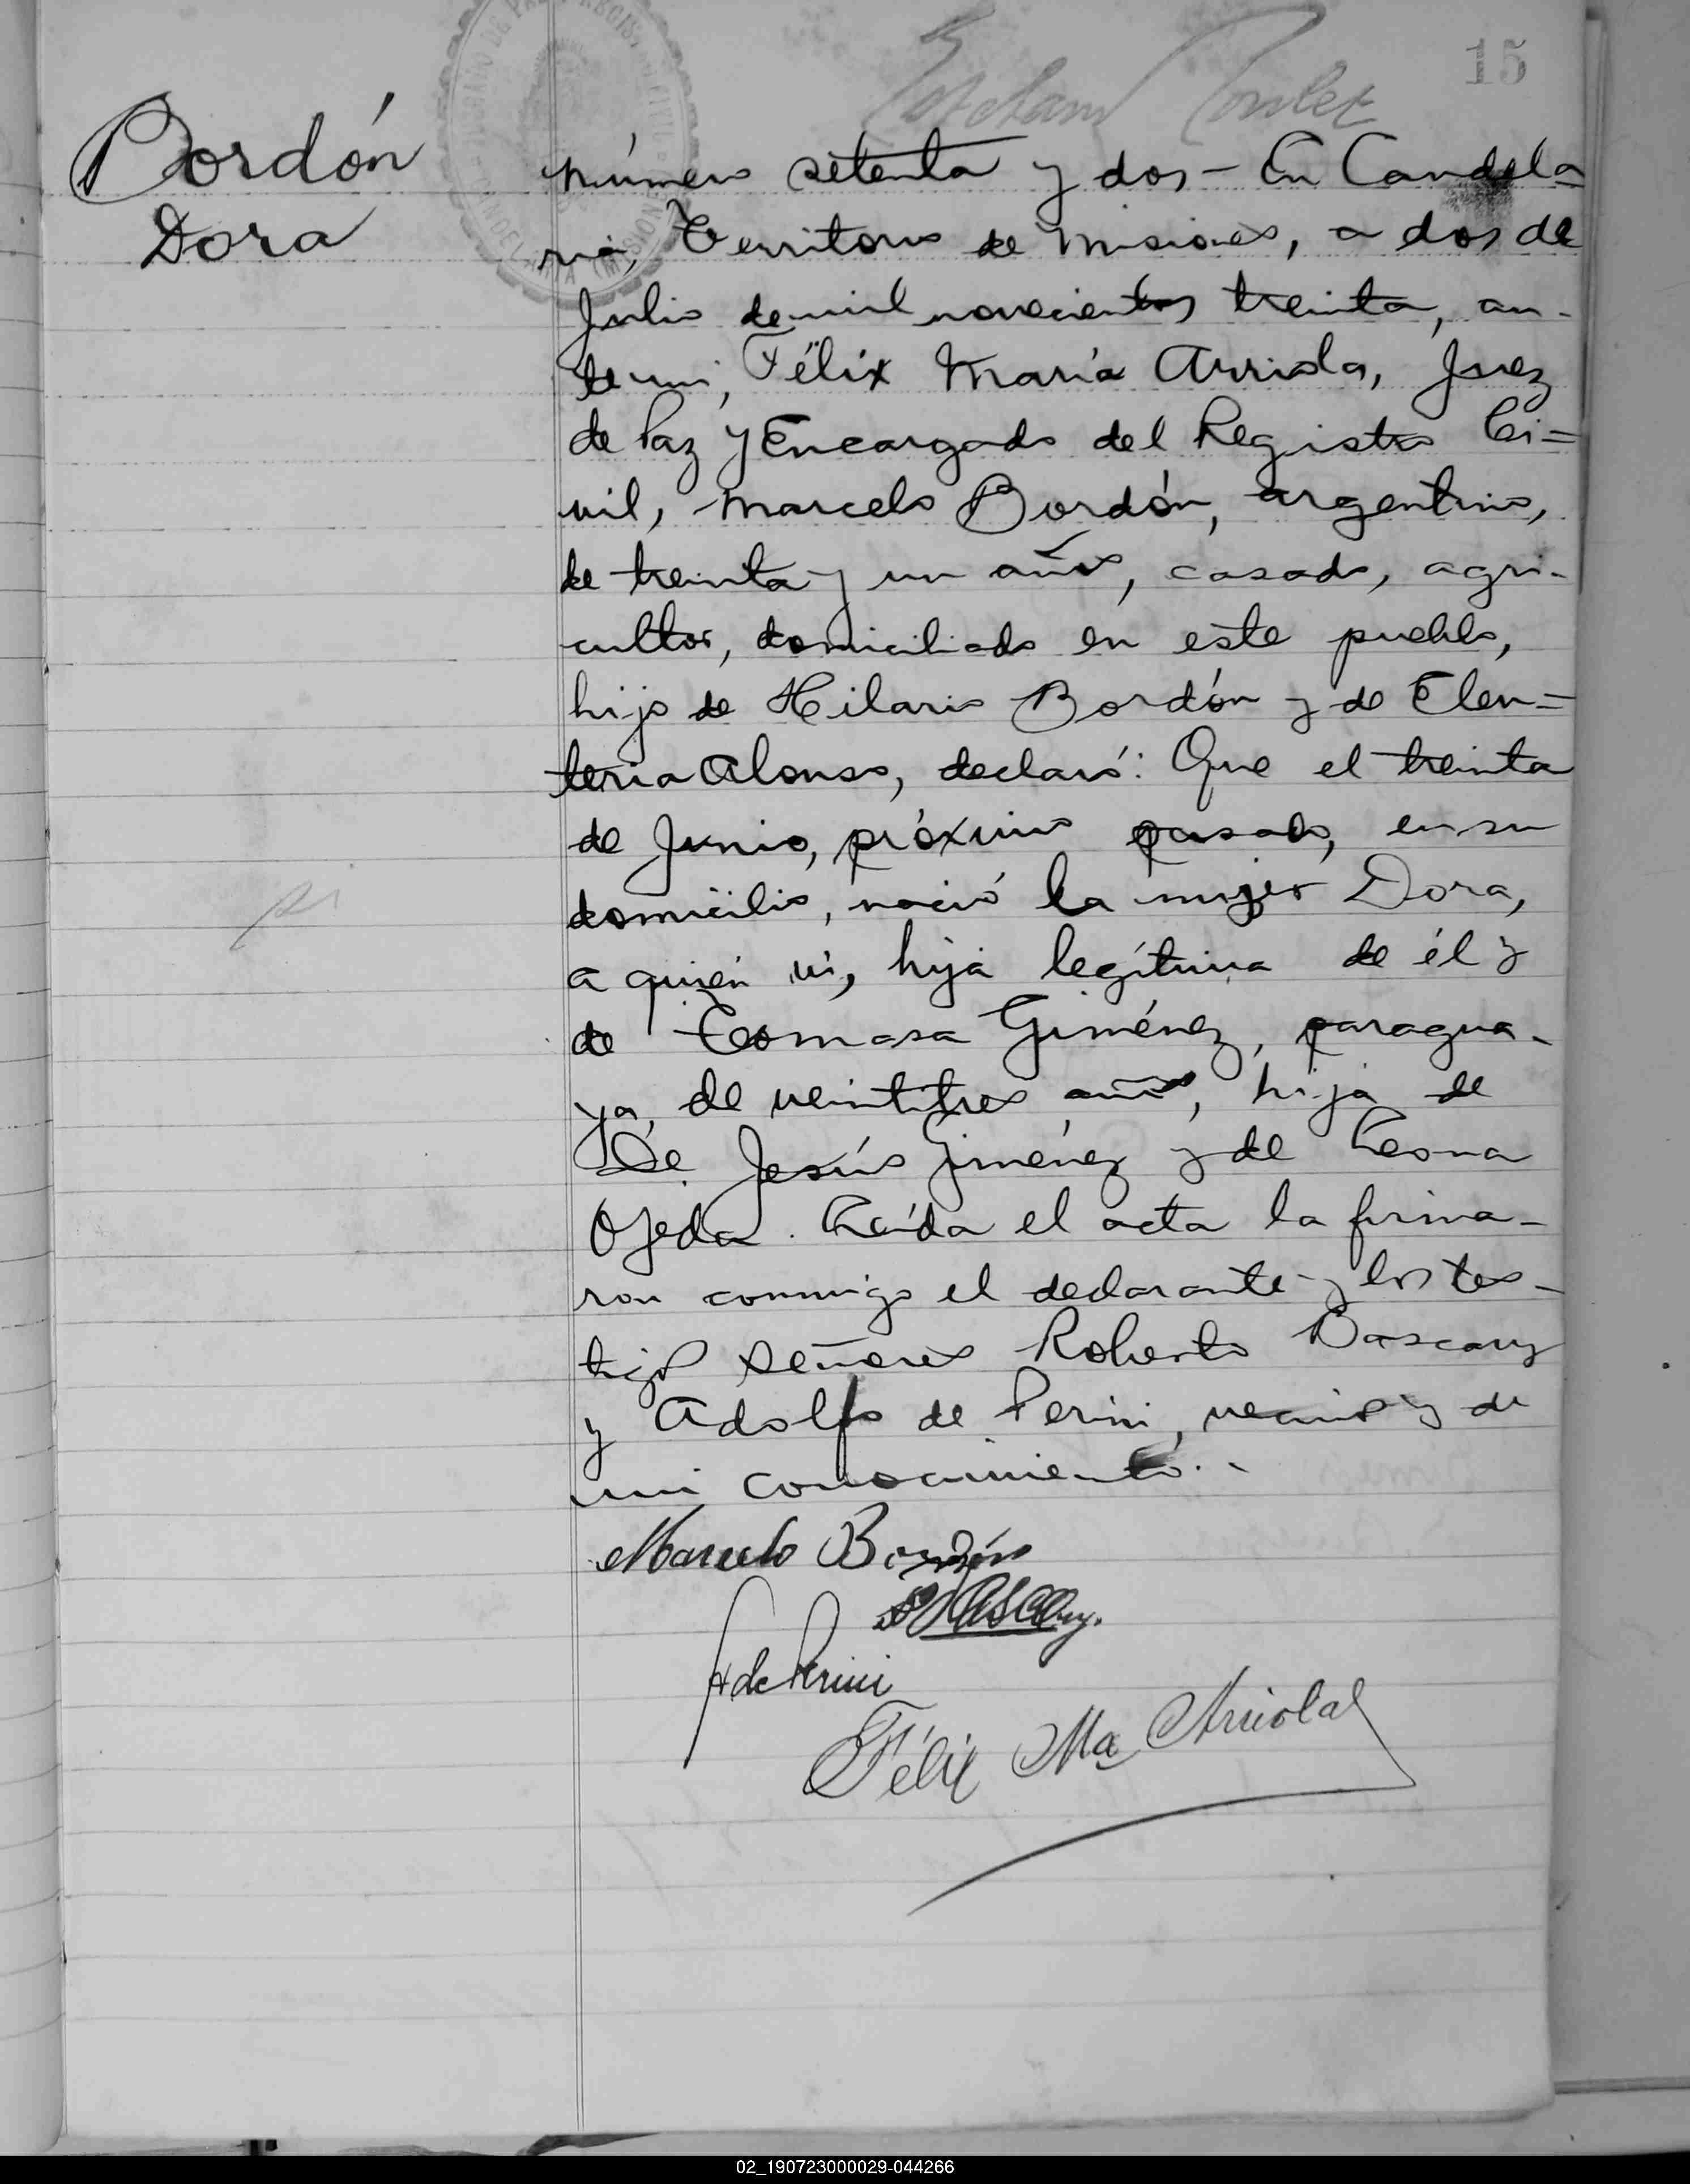 15
Bordón
Dora
número setenta y dos - En Candela
ria, Territorio de Misiones, a dos de
Julio de mil novecientos treinta, an-
te mi, Félix María Arriola, Juez
de Paz y Encargado del Registro Ci=
vil, Marcelo Bordón, argentino,
de treinta y un años, casado, agri-
cultor, domiciliado en este pueblo,
hijo de Hilario Bordón y de Eleu=
teria Alonso, declaró: Que el treinta
de Junio, próximo pasado, en su
domicilio, nació la mujer Dora,
a quién vi, hija legítima de él y
de Tomasa Giménez, paragua-
ya, de veintitres años, hija de
De Jesús Giménez y de Leona
Ojeda. Leída el acta la firma-
ron conmigo el declarante y los tes-
tigos señores Roberto Bascary
y Adolfo de Perini, vecinos y de
mi conocimiento.-
Marcelo Bordón
Bascary.
A de Perini
Félix Ma Arriola
02_190723000029-044266